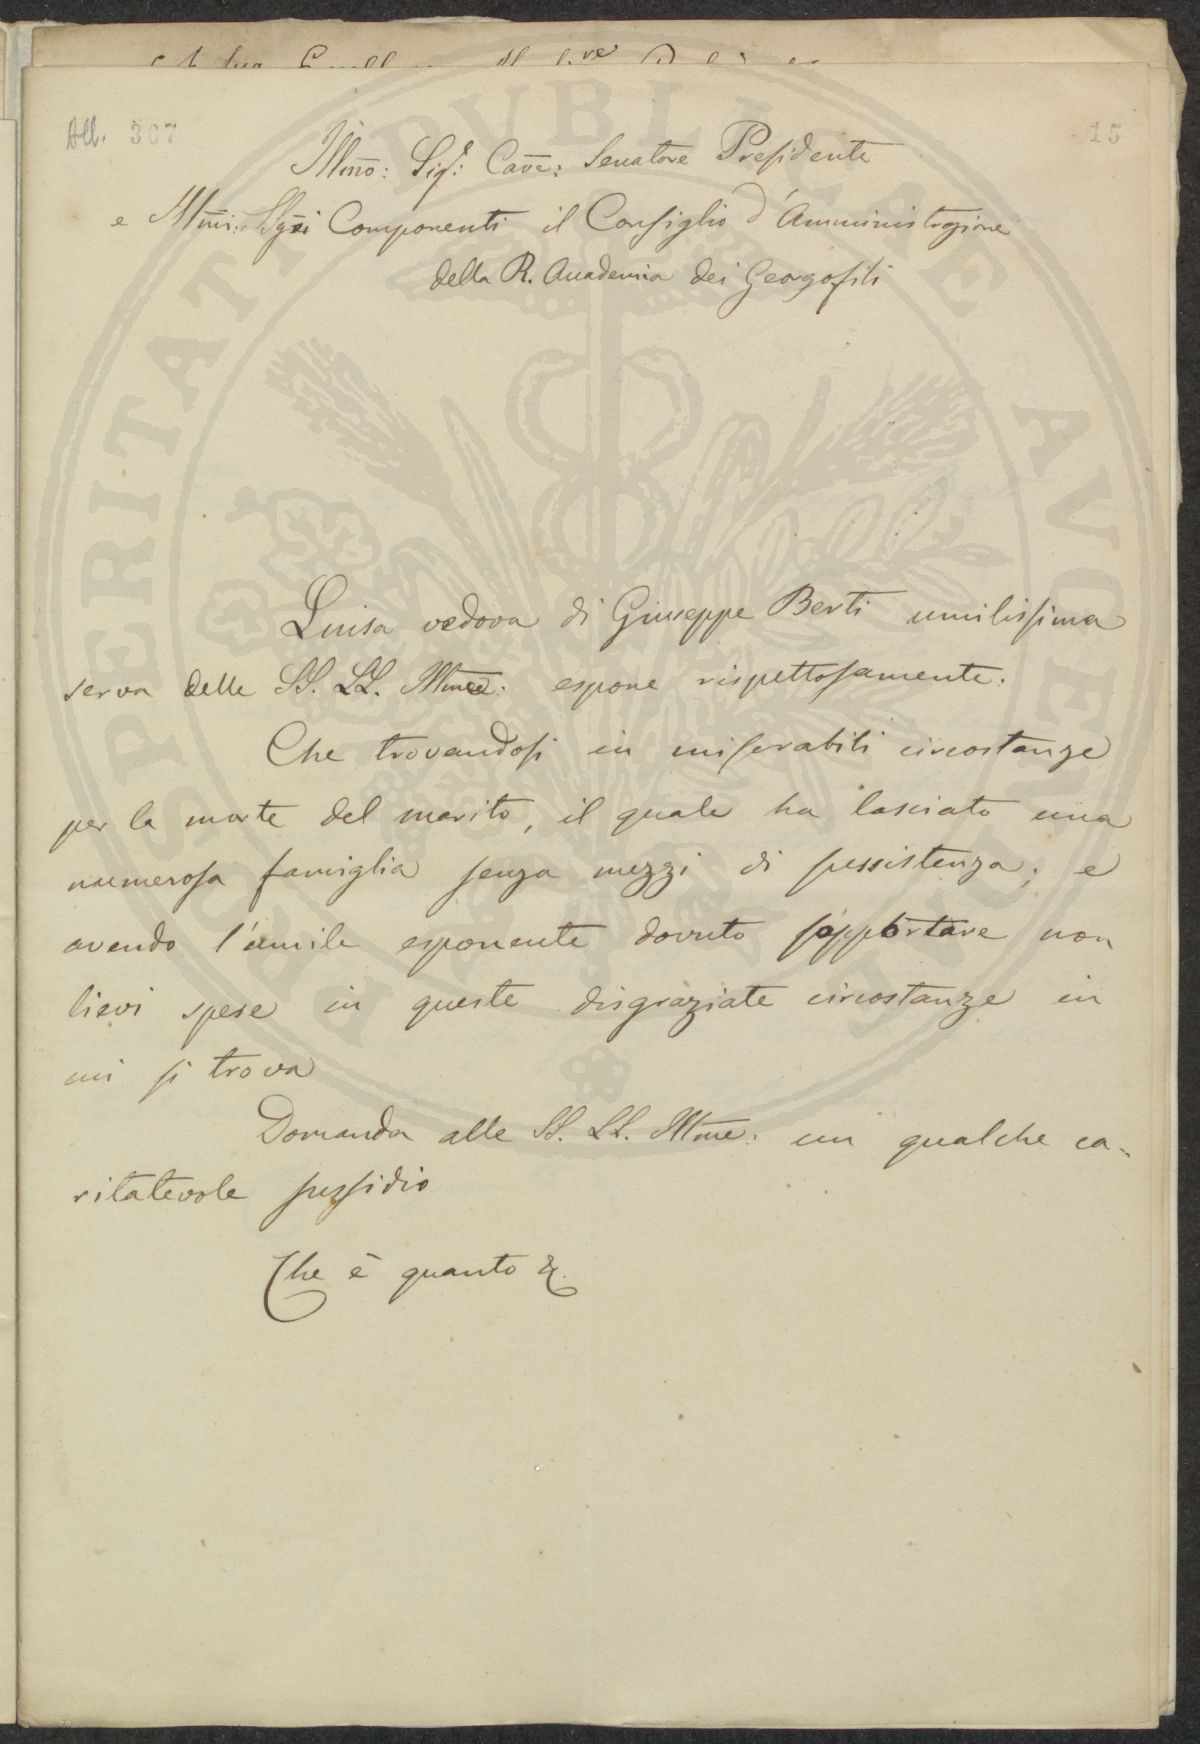 All. 367
15
Illmo: Sigr: Cave: Senatore Presidente
e Illmi: SSgri Componenti il Consiglio d'Amministrazione
della R. Accademia dei Georgofili
Luisa vedova di Giuseppe Berti umilissima
serva delle SS. LL. Illme: espone rispettosamente.
Che trovandosi in miserabili circostanze
per la morte del marito, il quale ha lasciato una
numerosa famiglia senza mezzi di sussistenza; e
avendo l'umile esponente dovuto sopportare non
lievi spese in queste disgraziate circostanze in
cui si trova
Domanda alle SS. LL. Illme: un qualche ca-
ritatevole sussidio
Che è quanto &.
PROSPERITATI PVBLICAE AVGENDAE